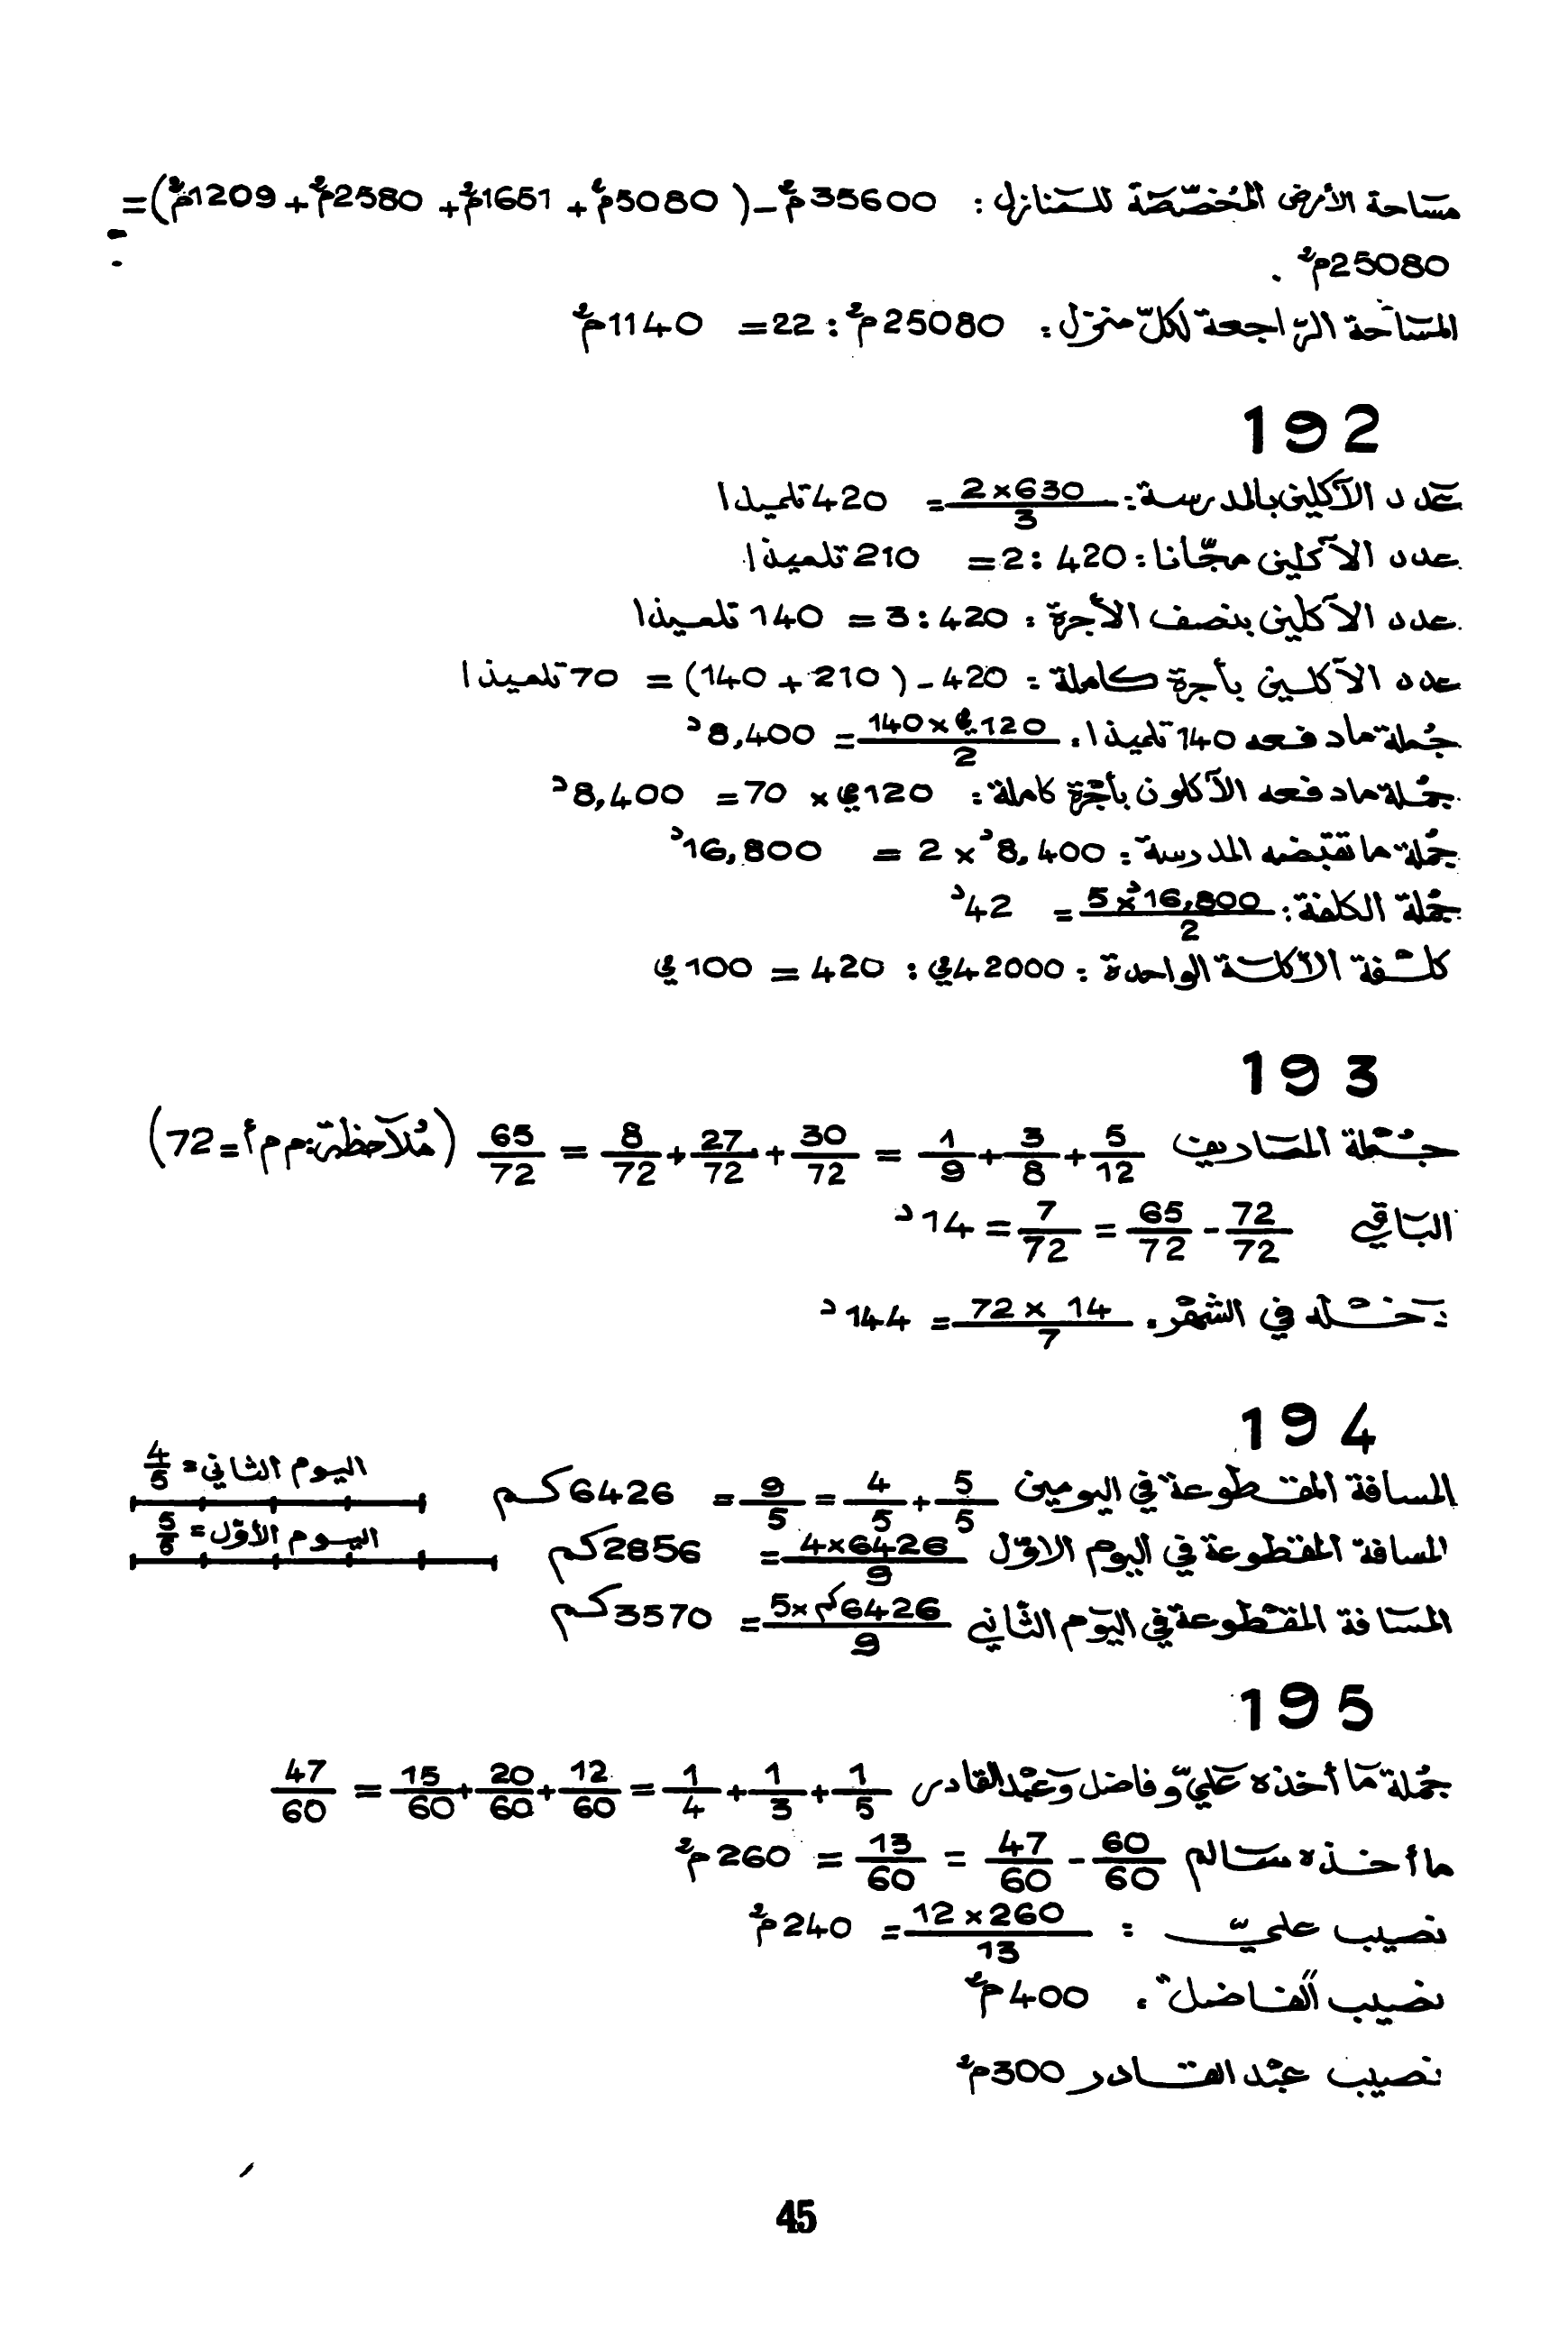 مساحة الأرض المخصّصة للمنازل : 35600م² - ( 5080م² + 1651م² + 2580م² + 1209م² ) =
25080م² .
المساحة الرّاجعة لكلّ منزل : 25080م² : 22 = 1140م²
192
عدد الآكلين بالمدرسة : 2×630/3 = 420 تلميذا
عدد الآكلين مجّانا : 420 : 2 = 210 تلميذا
عدد الآكلين بنصف الأجرة : 420 : 3 = 140 تلميذا
عدد الآكلين بأجرة كاملة : 420 - ( 210 + 140 ) = 70 تلميذا
جُملة ما دفعه 140 تلميذا : 120ي × 140/2 = 8,400د
جُملة ما دفعه الآكلون بأجرة كاملة : 120ي × 70 = 8,400د
جُملة ما تقبضه المدرسة : 8,400د × 2 = 16,800د
جُملة الكلفة : 16,800د × 5/2 = 42د
كلفة الأكلة الواحدة : 42000ي : 420 = 100ي
193
جُملة المصاريف 5/12 + 3/8 + 1/9 = 30/72 + 27/72 + 8/72 = 65/72 (مُلاحظة : م م أ = 72)
الباقي 72/72 - 65/72 = 7/72 = 14د
دخله في الشهر : 14 × 72/7 = 144د
194
المسافة المقطوعة في اليومين 5/5 + 4/5 = 9/5 = 6426كم
اليوم الثاني = 4/5
المسافة المقطوعة في اليوم الاوّل 4×6426/9 = 2856كم
اليوم الأوّل = 5/5
المسافة المقطوعة في اليوم الثّاني 6426كم×5/9 = 3570كم
195
جُملة ما أخذه عليّ وفاضل وعبْد القادر 1/5 + 1/3 + 1/4 = 12/60 + 20/60 + 15/60 = 47/60
ما أخذه سالم 60/60 - 47/60 = 13/60 = 260م²
نصيب عليّ : 12×260/13 = 240م²
نصيب "الفاضل" : 400م²
نصيب عبْد القادر 300م²
45